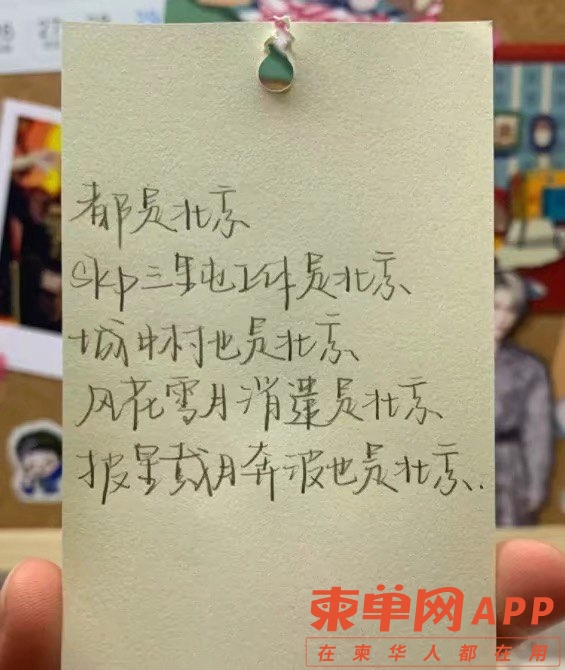 27
都是北京
skp三里屯工体是北京
城中村也是北京
风花雪月消遣是北京
披星戴月奔波也是北京.
柬单网APP
在柬华人都在用